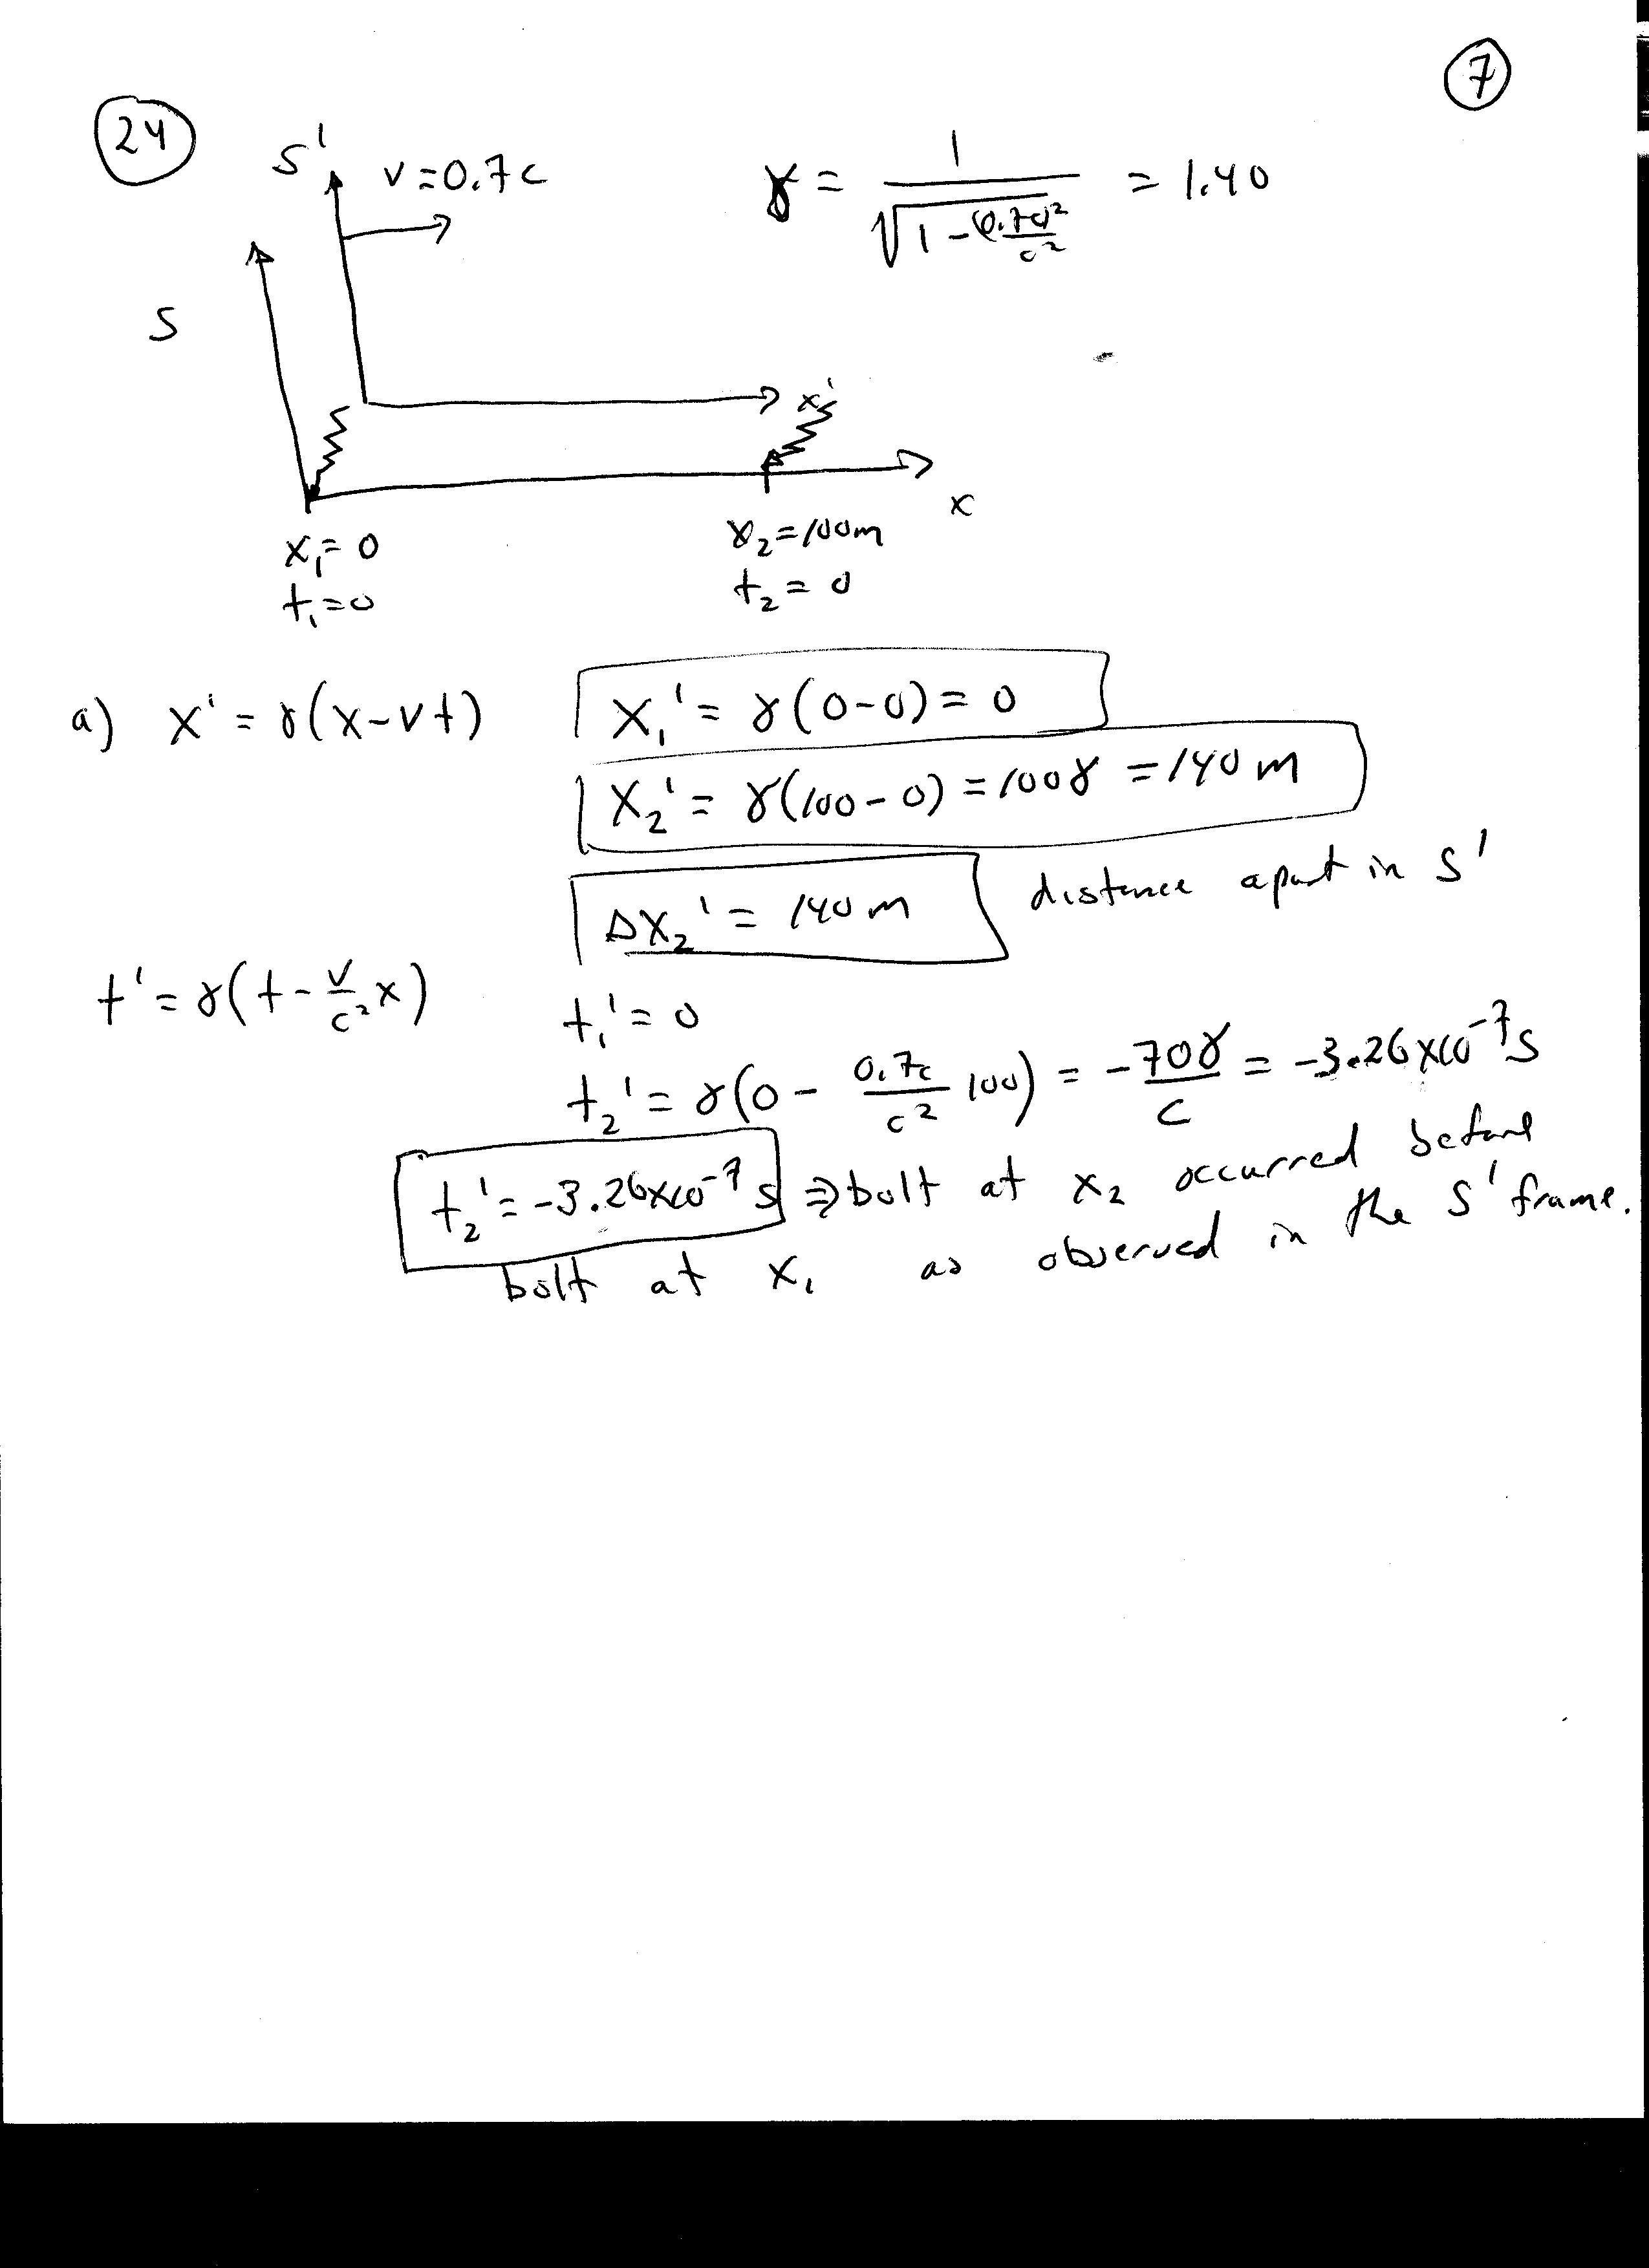 7
24
S'
v=0.7c
γ = 1/√(1-(0.7c)²/c²) = 1.40
S
x'
x
x₁=0
t₁=0
x₂=100m
t₂=0
a) x'=γ(x-vt)
x₁'=γ(0-0)=0
x₂'=γ(100-0)=100γ=140m
Δx₂'=140m distance apart in S'
t'=γ(t-v/c² x)
t₁'=0
t₂'=γ(0-0.7c/c² 100)=-70γ/c=-3.26x10⁻⁷s
t₂'=-3.26x10⁻⁷s ⇒ bolt at x₂ occurred before
bolt at x₁ as observed in the S' frame.